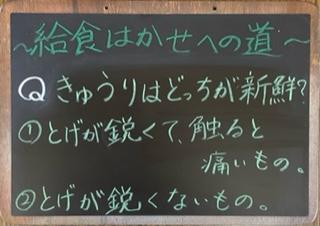 ～給食はかせへの道～
Qきゅうりはどっちが新鮮？
①とげが鋭くて、触ると
痛いもの。
②とげが鋭くないもの。